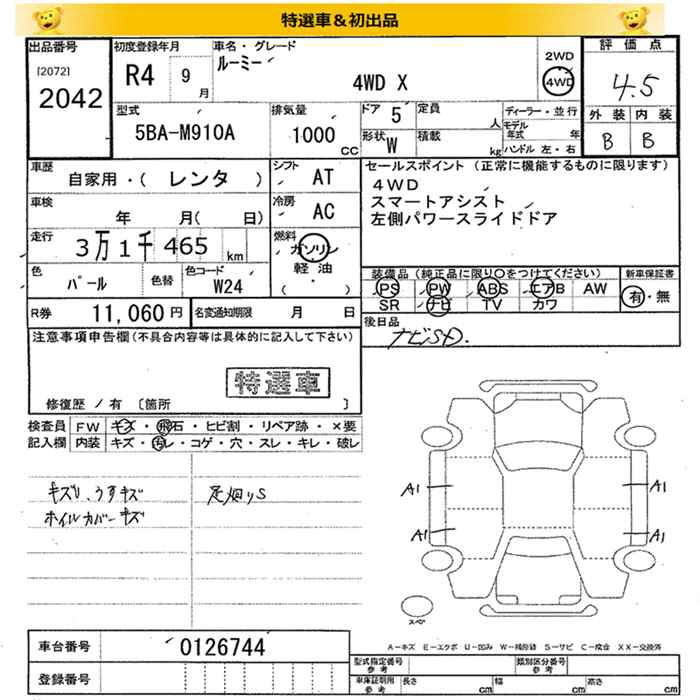 特選車＆初出品
出品番号 初度登録年月 車名・グレード 評価点
[2072] R4 9月 ルーミー 2WD
2042 4WD X 4WD 4.5
型式 排気量 ドア 5 定員 人 ディーラー・並行 外装 内装
5BA-M910A 1000 CC 形状 W 積載 kg モデル年式 年 B B
ハンドル 左・右
車歴 シフト セールスポイント (正常に機能するものに限ります)
自家用・( レンタ ) AT 4WD
車検 冷房 スマートアシスト
年 月( 日) AC 左側パワースライドドア
走行 燃料
3万1千465 km ガソリン
色 色替 色コード 軽油 装備品 (純正品に限り○をつけてください) 新車保証書
パール W24 ( ・ ) PS PW ABS エアB AW 有・無
SR ナビ TV カワ
R券 11,060円 名変通知期限 月 日 後日品
注意事項申告欄(不具合内容等は具体的に記入して下さい) ナビSD.
特選車
修復歴／有 〔箇所 〕
検査員 FW キズ・飛石・ヒビ割・リペア跡・×要
記入欄 内装 キズ・汚レ・コゲ・穴・スレ・キレ・破レ
キズリ、うすキズ
ホイルカバーキズ
A1 A1
A1 A1
スペア
車台番号 0126744
A－キズ E－エクボ U－凹み W－補修跡 S－サビ C－腐食 XX－交換済
登録番号 型式指定番号 参考 類別区分番号 参考
車庫証明用 参考 長さ cm 幅 cm 高さ cm